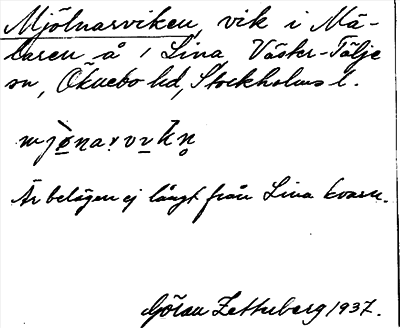 Mjölnarviken, vik i Mä-
laren å / Lina, Väster-Tälje
sn, Öknebo hd, Stockholms l.
Är belägen ej långt från Lina kvarn.
Göran Zetterberg 1937.